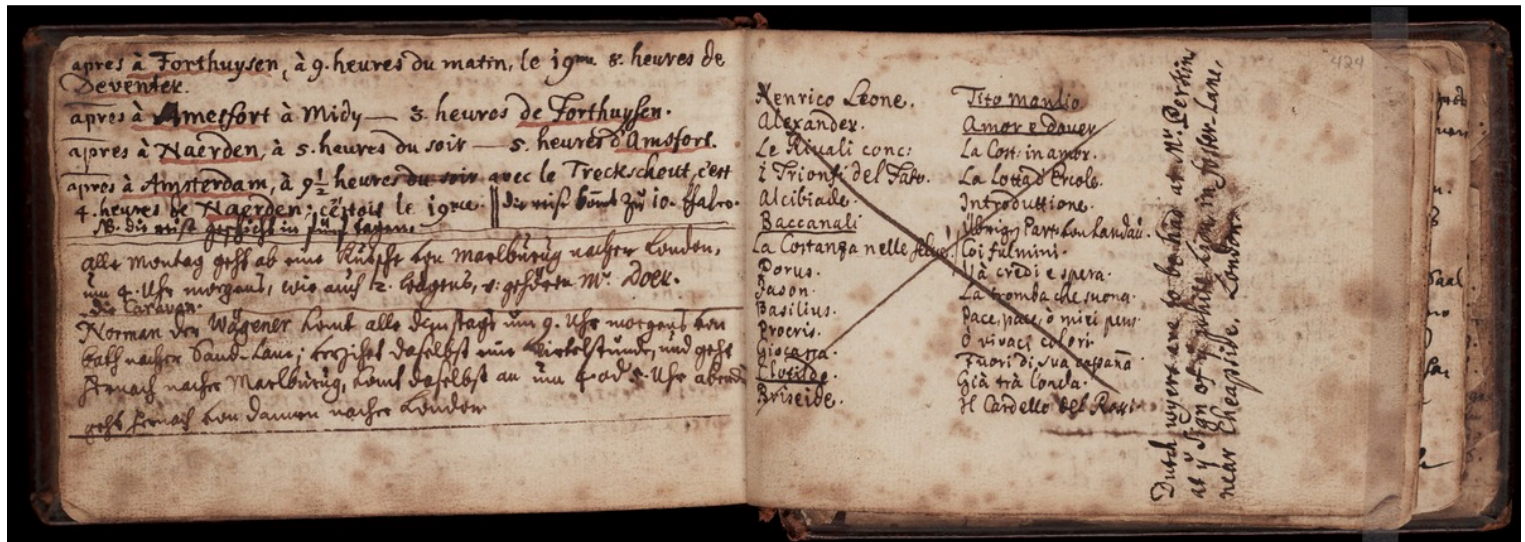 apres à Forthuysen, à 9. heures du matin, le 19me 8. heures de
Deventer.
apres à Amesfort à Midy — 3. heures de Forthuysen.
apres à Naerden, à 5. heures du soir — 5. heures d'Amsfort.
apres à Amsterdam, à 9½ heures du soir avec le Treckscheut, c'est
4. heures de Naerden; c'étoit le 19me. || die reise komt zu 10. thalr.
NB. die reise geschicht in fünf tagen.
alle Montag geht ab eine Kutsche von Marlburug nacher London,
um 4. Uhr morgens, wie auch
die Caravan.
Norman der Wägener komt alle um 9. Uhr morgens von
bath nacher Sand-Lane; daselbst eine Viertelstunde, und geht
hernach nacher Marlburug, komt daselbst an um 4 od 5. Uhr abends
geht hernach von dannen nacher London
Henrico Leone.
Alexander.
Le Rivali conc:
i Trionfi del Fato.
Alcibiade.
Baccanali
La Costanza nelle selve.
Porus.
Jason.
Basilius.
Procris.
Giocasta.
Clotilde.
Briseide.
Tito manlio
Amor e dover
La Cost: in amor.
La Lotta d'Ercole.
Introduttione.
Übrige Part: von Landau.
Coi fulmini.
Và credi e spera.
La tromba che suona.
Pace, pace, ò miei pens.
Ò vivaci colori
Fuori di sua capanā
Già trà l'onda.
Il Cardello del Rossi
Dutch wyers are to be had at Mr. Perkins
at ye Sign of ye white Lion in foster-Lane,
near Cheapside. London.
424